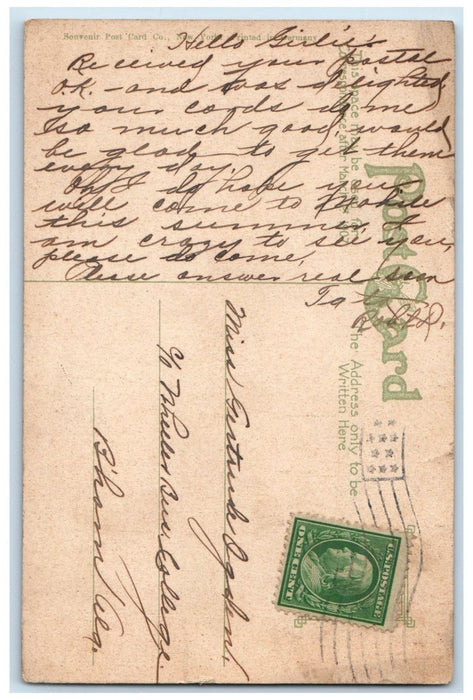 Souvenir Post Card Co., New York, Printed in Germany
Hello Girlie:
Received your postal
O.K. - and was delighted,
your cards do me
so much good, would
be glad to get them
every day.
Oh! I do hope you
will come to Mobile
this summer, I
am crazy to see you,
please do come,
Please answer real soon
This space may be used for
Correspondence after March
Post Card
The Address only to be
Written Here
Miss Gertrude Ogden
c/o Wheeler Bus. College
B'ham Ala.
U.S. POSTAGE
ONE CENT